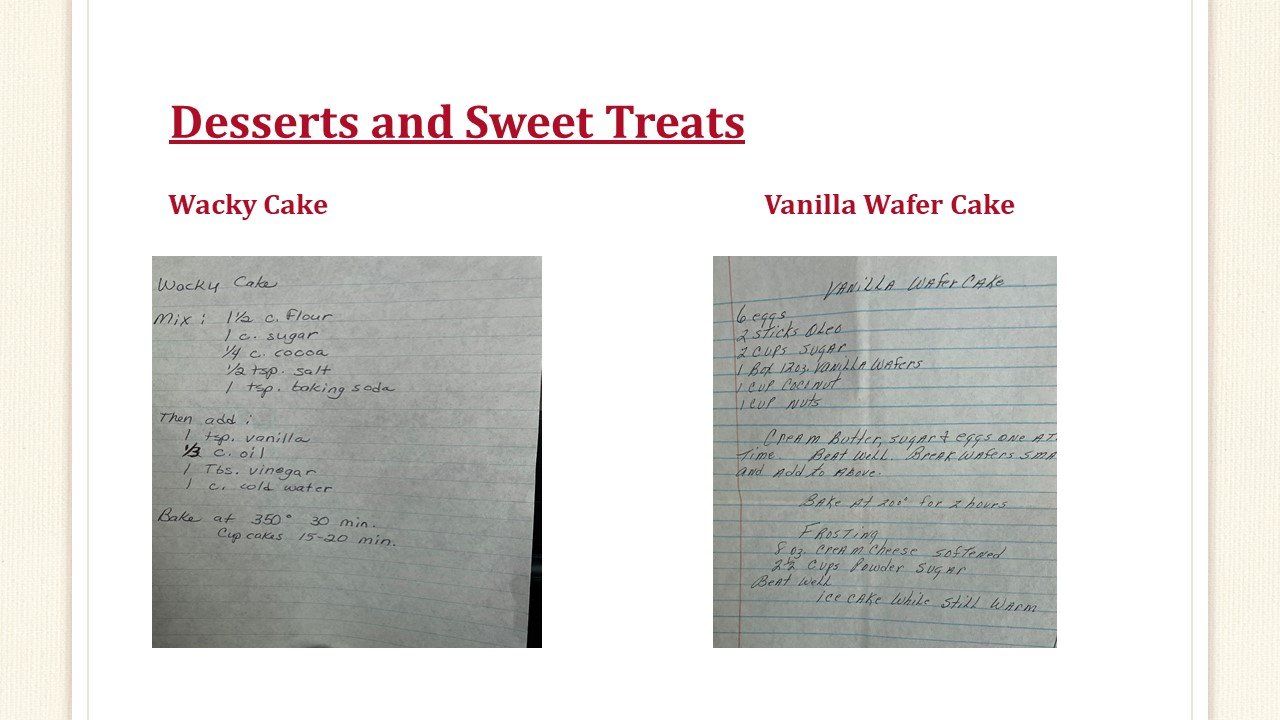 Desserts and Sweet Treats
Wacky Cake
Wacky Cake
Mix: 1 1/2 c. flour
1 c. sugar
1/4 c. cocoa
1/2 tsp. salt
1 tsp. baking soda
Then add:
1 tsp. vanilla
1/3 c. oil
1 Tbs. vinegar
1 c. cold water
Bake at 350° 30 min.
Cupcakes 15-20 min.
Vanilla Wafer Cake
VANILLA WAFER CAKE
6 eggs
2 STICKS OLEO
2 CUPS SUGAR
1 BOX 12 oz. VANILLA WAFERS
1 CUP COCONUT
1 CUP NUTS
CREAM BUTTER, SUGAR & EGGS ONE AT
TIME. BEAT WELL. BREAK WAFERS SMA
AND ADD TO ABOVE.
BAKE AT 200° FOR 2 HOURS
FROSTING
8 oz. CREAM CHEESE SOFTENED
2 1/2 CUPS POWDER SUGAR
BEAT WELL
ICE CAKE WHILE STILL WARM